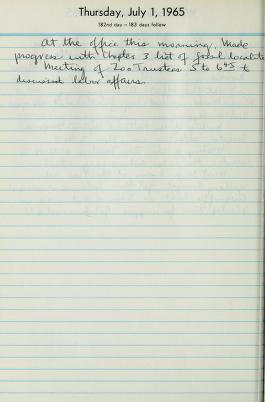 Thursday, July 1, 1965
182nd day — 183 days follow
At the office this morning. Made
progress with Chapter 3 list of fossil localit
Meeting of Zoo Trustees 5 to 6 45 t
discussed labor affairs.